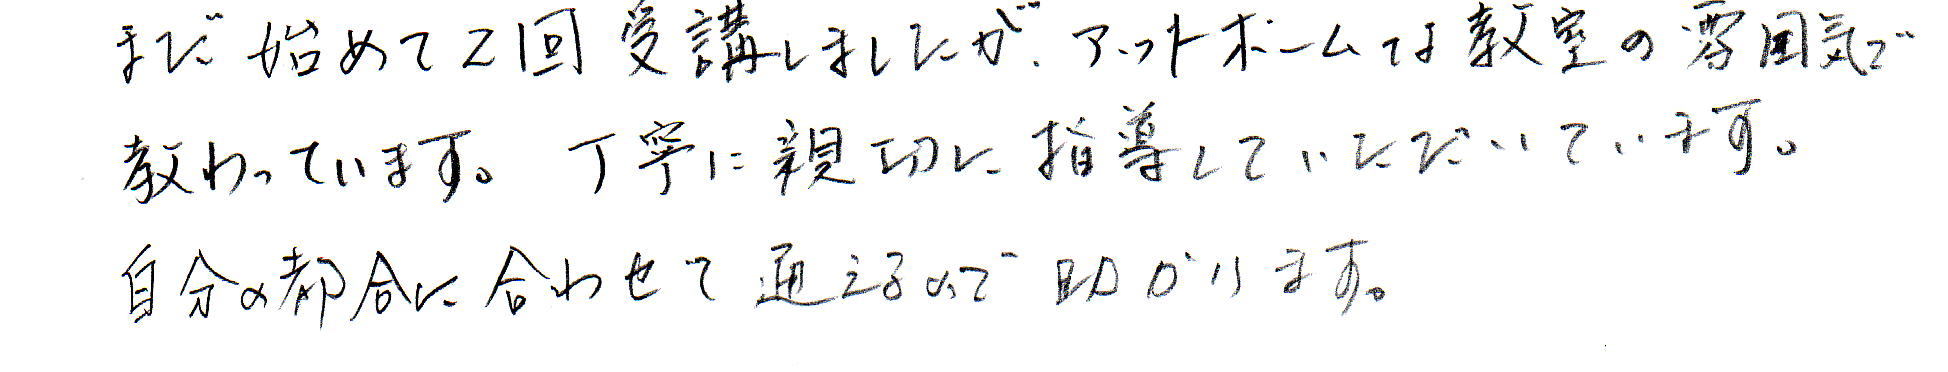 まだ始めて2回受講しましたが、アットホームな教室の雰囲気で
教わっています。丁寧に親切に指導していただいています。
自分の都合に合わせて通えるので助かります。